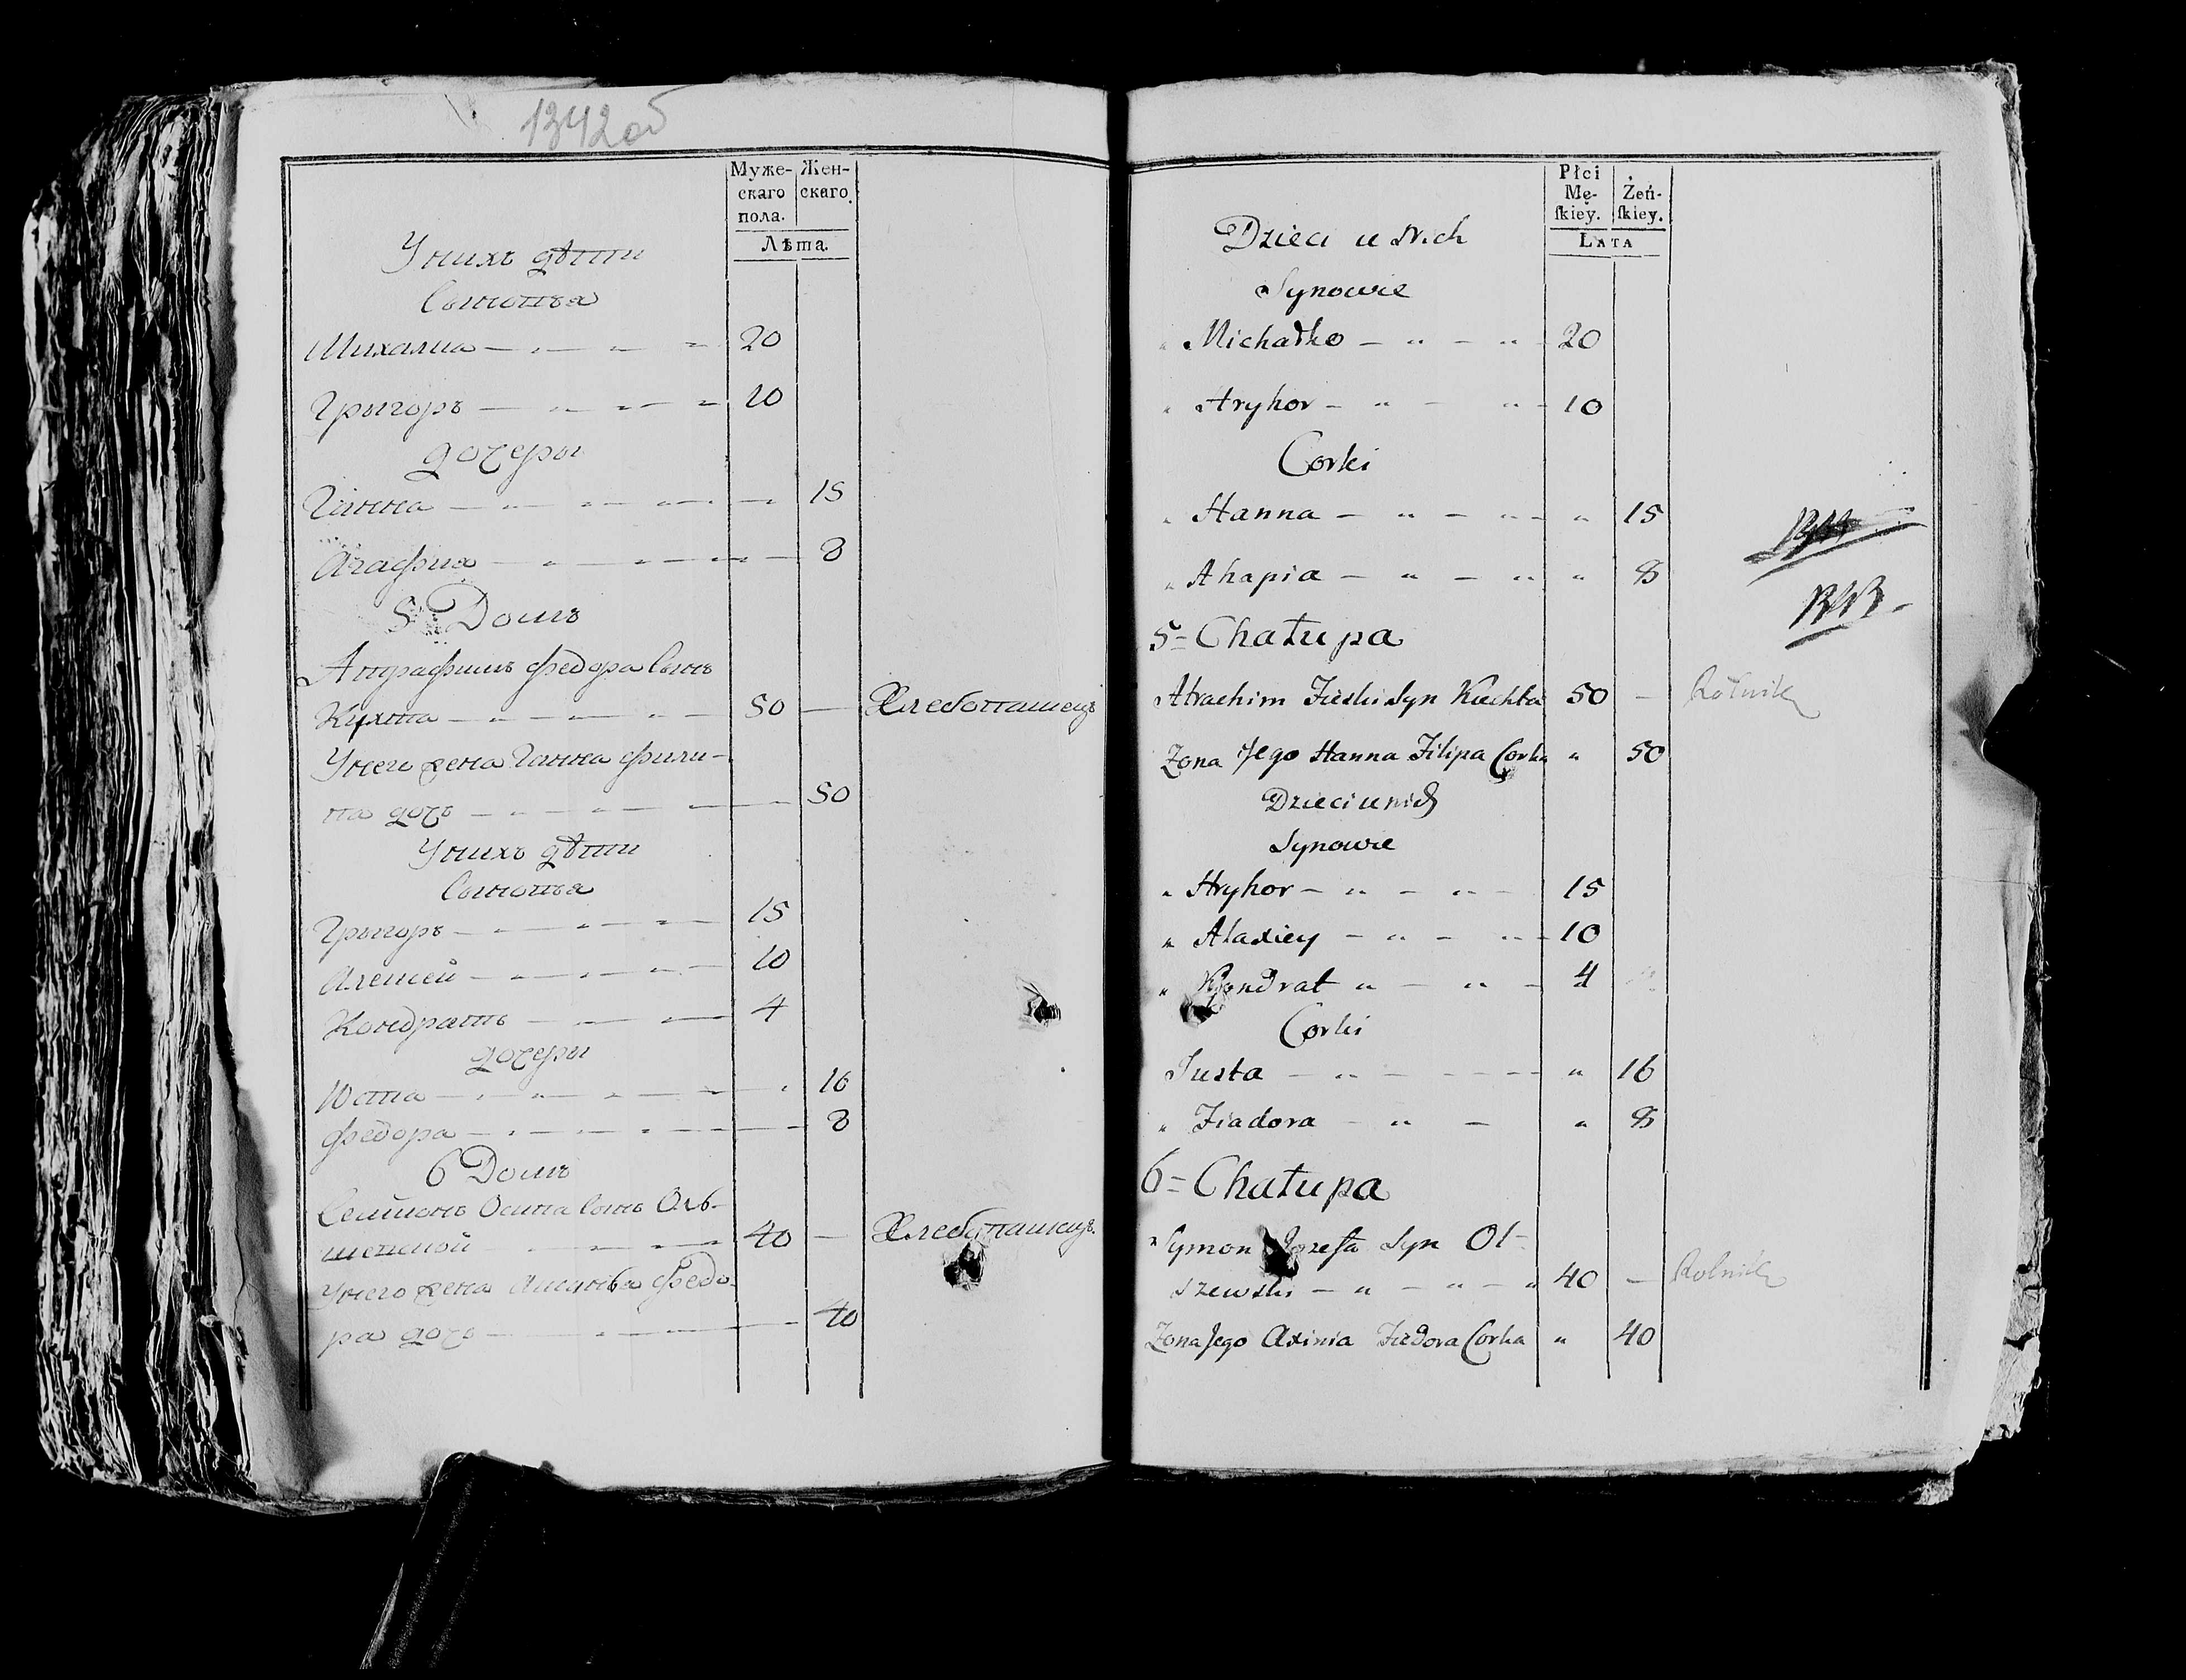 1342об
Муже- Жен-
скаго скаго.
пола.
Лѣта.
У нихъ дѣти
Сыновья
Михалка 20
Грыгоръ 10
дочеры
Ганна 15
Агафия 8
5 Домъ
Федора Сынъ
Кухта 50 — Хлебопашецъ
У него жена Ганна Фили-
па дочь 50
У нихъ дѣти
Сыновья
Грыгоръ 15
Алексей 10
Кондратъ 4
дочеры
Юста 16
Федора 8
6 Домъ
Семионъ Осипа Сынъ Оль-
шевской 40 — Хлебопашецъ.
У него жена Федо-
ра дочь 40
Płci
Mę- Żeń-
ſkiey. ſkiey.
LATA
Dzieci u Nich
Synowie
„ Michałko 20
„ Hryhor 10
Corki
„ Hanna „ 15
„ Ahapia „ 8
1343
5 = Chałupa
Syn Kuchta 50 — Rolnik
Żona Jego Hanna Filipa Corka „ 50
Dzieci u nich
Synowie
„ Hryhor 15
„ Alaxiey 10
„ Kondrat 4
Corki
Justa „ 16
„ Fiadora „ 8
6 = Chałupa
Symon Jozefa Syn Ol-
szewski 40 — Rolnik
Żona Jego Axinia Fiedora Corka „ 40